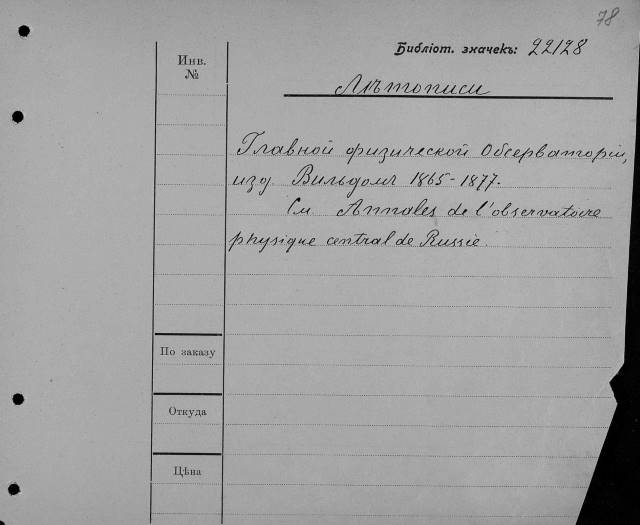 78
Библіот. значекъ: 22128
Инв.
№
Лѣтописи
Главной физической Обсерваторіи,
изд. Вильдомъ 1865-1877.
См. Annales de l'observatoire
physique central de Russie.
По заказу
Откуда
Цѣна